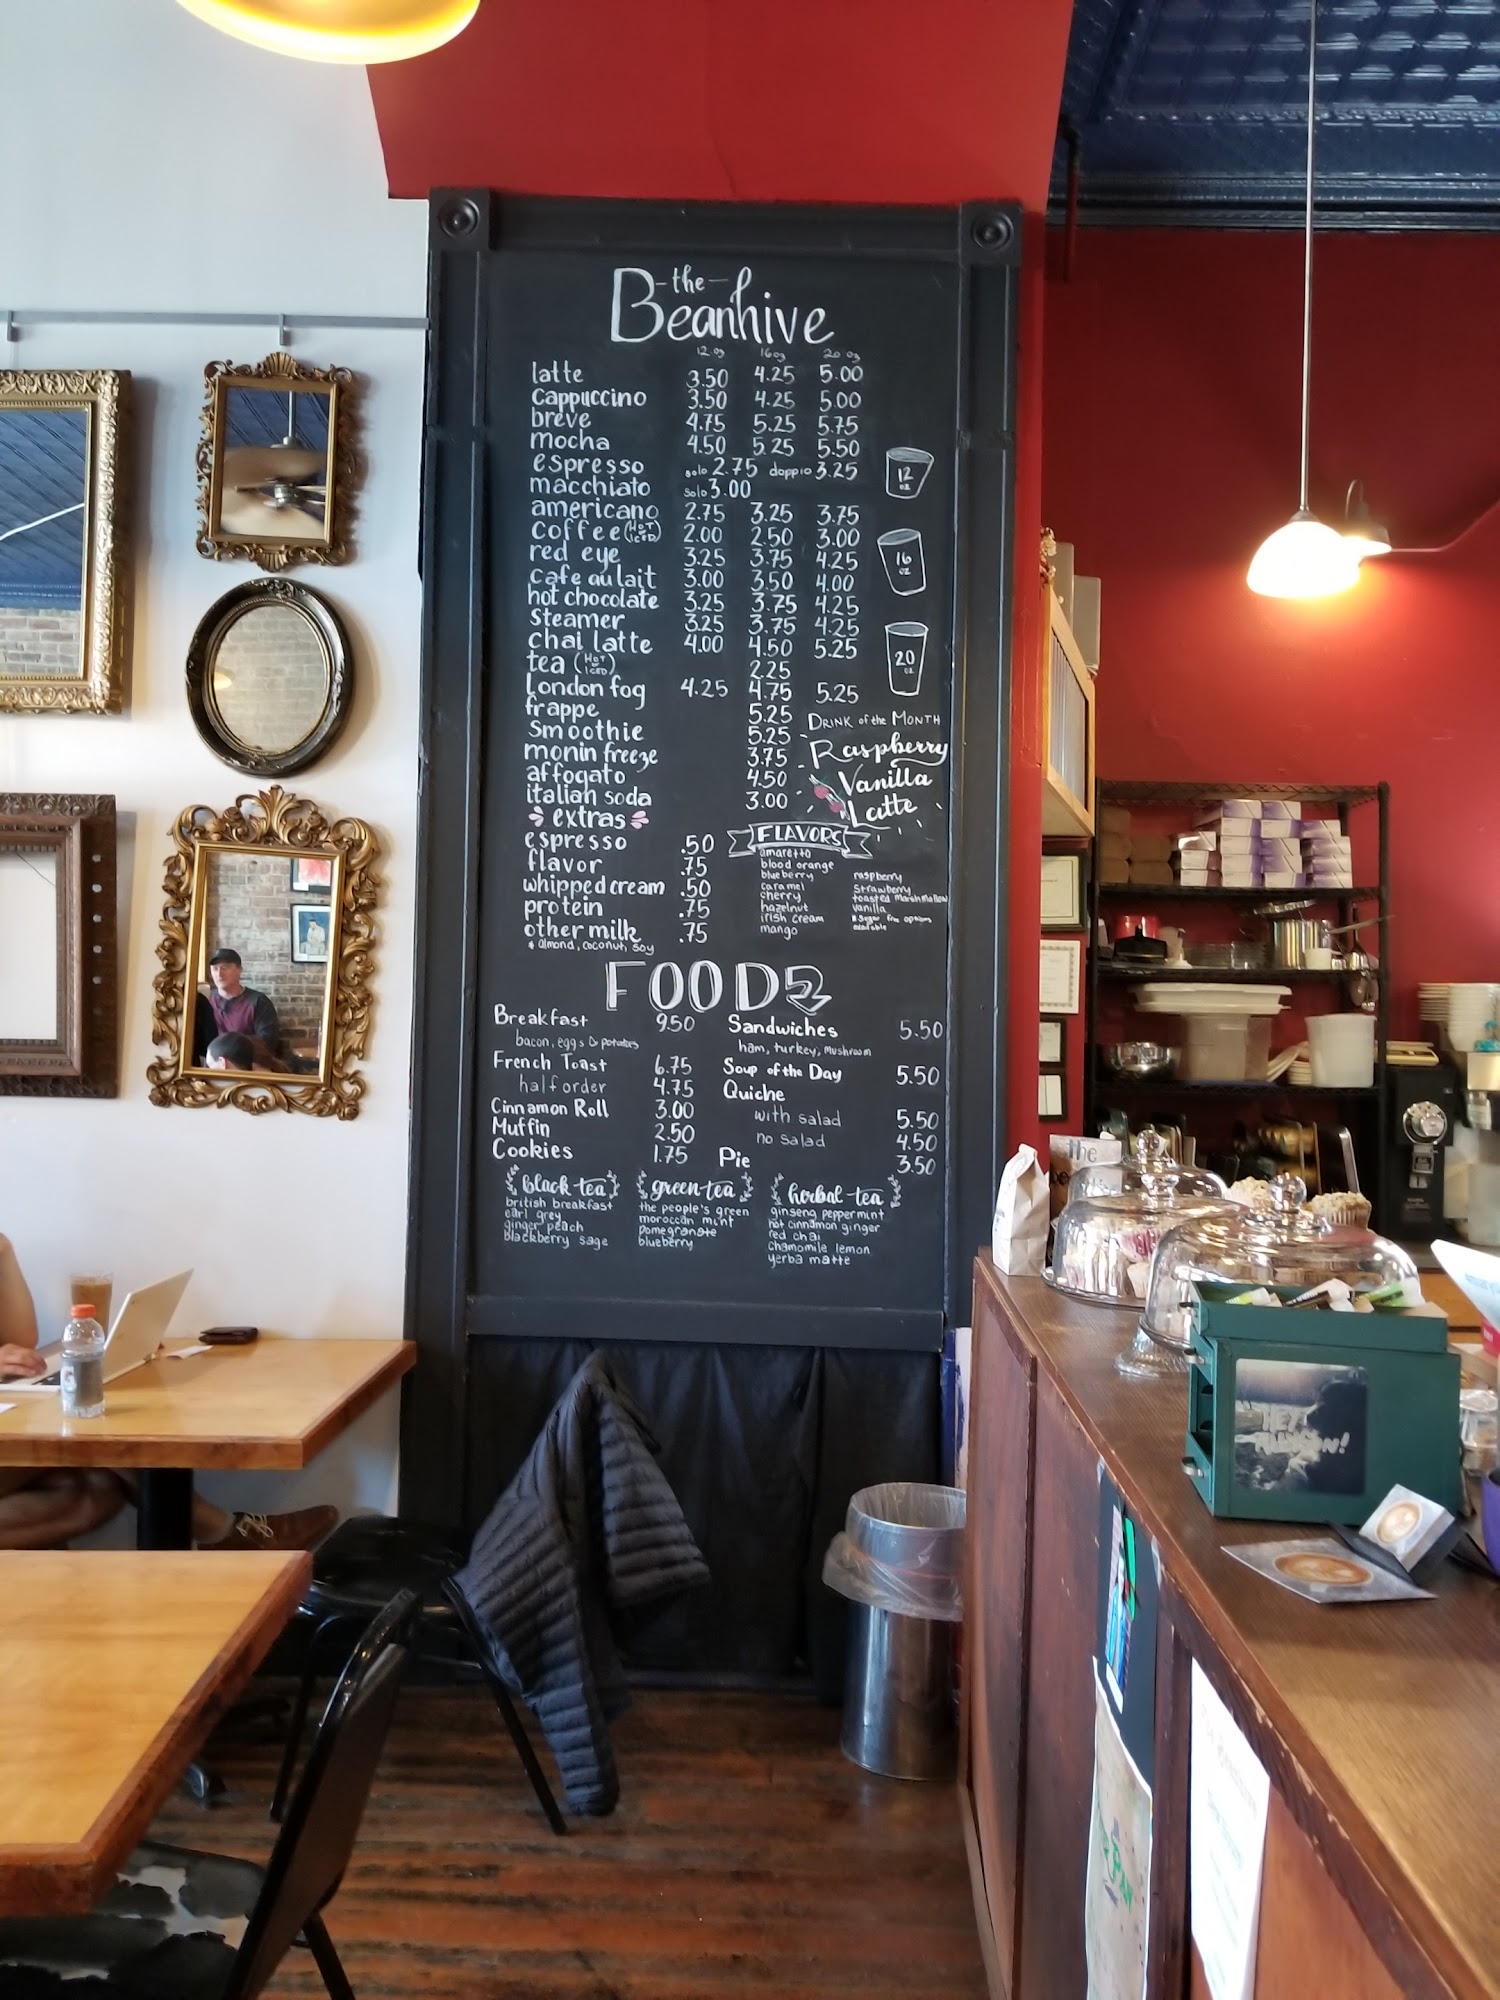 the
Beanhive
12 oz 16 oz 20 oz
latte 3.50 4.25 5.00
cappuccino 3.50 4.25 5.00
breve 4.75 5.25 5.75
mocha 4.50 5.25 5.50
espresso solo 2.75 doppio 3.25
macchiato solo 3.00
americano 2.75 3.25 3.75
coffee (HOT or ICED) 2.00 2.50 3.00
red eye 3.25 3.75 4.25
cafe au lait 3.00 3.50 4.00
hot chocolate 3.25 3.75 4.25
steamer 3.25 3.75 4.25
chai latte 4.00 4.50 5.25
tea (HOT or ICED) 2.25
London fog 4.25 4.75 5.25
frappe 5.25
smoothie 5.25
monin freeze 3.75
affogato 4.50
italian soda 3.00
12 oz
16 oz
20 oz
DRINK of the MONTH
Raspberry
Vanilla
Latte
extras
espresso .50
flavor .75
whipped cream .50
protein .75
other milk .75
* almond, coconut, soy
FLAVORS
amaretto
blood orange
blueberry
caramel
cherry
hazelnut
irish cream
mango
raspberry
strawberry
toasted marshmallow
vanilla
* Sugar free options
available
FOOD
Breakfast 9.50
bacon, eggs & potatoes
French Toast 6.75
half order 4.75
Cinnamon Roll 3.00
Muffin 2.50
Cookies 1.75
Sandwiches 5.50
ham, turkey, mushroom
Soup of the Day 5.50
Quiche
with salad 5.50
no salad 4.50
Pie 3.50
black tea
british breakfast
earl grey
ginger peach
blackberry sage
green tea
the people's green
moroccan mint
pomegranate
blueberry
herbal tea
ginseng peppermint
hot cinnamon ginger
red chai
chamomile lemon
yerba matte
the
HEY